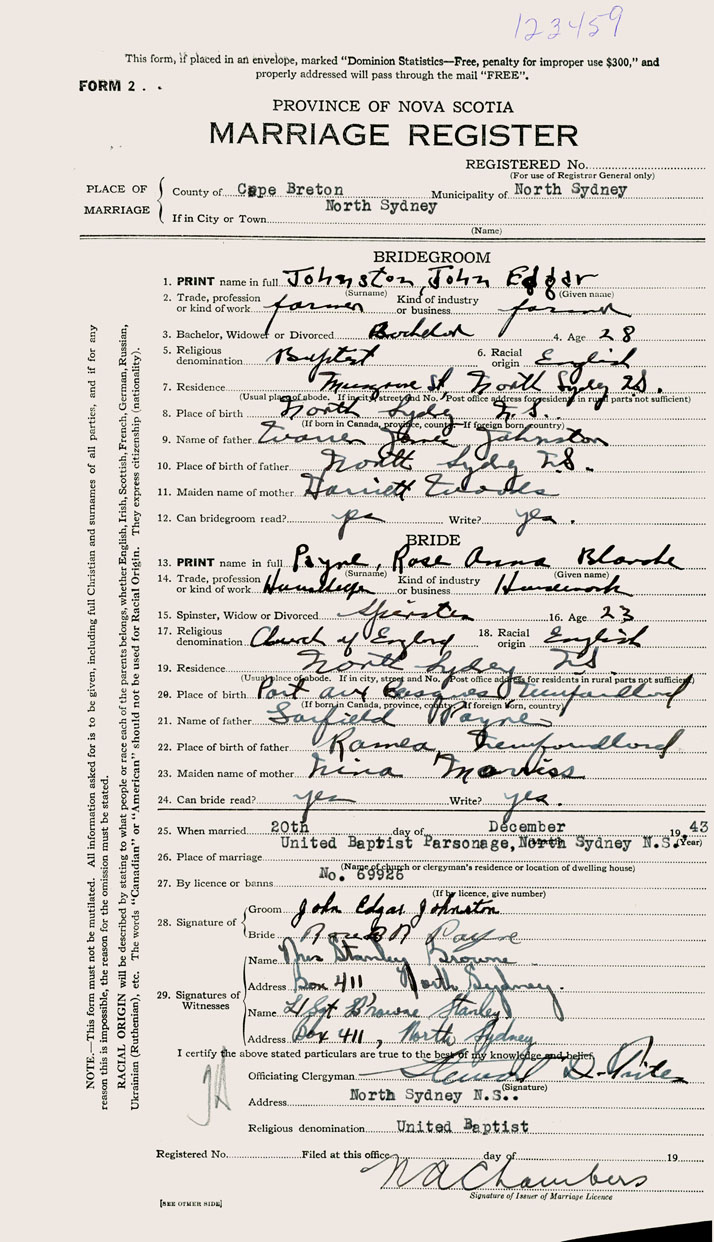 123459
This form, if placed in an envelope, marked "Dominion Statistics—Free, penalty for improper use $300," and
properly addressed will pass through the mail "FREE".
FORM 2 . .
PROVINCE OF NOVA SCOTIA
MARRIAGE REGISTER
REGISTERED No.
(For use of Registrar General only)
PLACE OF MARRIAGE
County of Cape Breton Municipality of North Sydney
If in City or Town North Sydney
(Name)
BRIDEGROOM
1. PRINT name in full Johnston, John Edgar
(Surname) (Given name)
2. Trade, profession or kind of work farmer Kind of industry or business farmer
3. Bachelor, Widower or Divorced Bachelor 4. Age 28
5. Religious denomination Baptist 6. Racial origin English
7. Residence Musgrave St, North Sydney N.S.
(Usual place of abode. If in city, street and No. Post office address for residents in rural parts not sufficient)
8. Place of birth North Sydney N.S.
(If born in Canada, province, county. If foreign born, country)
9. Name of father Johnston
10. Place of birth of father North Sydney N.S.
11. Maiden name of mother Harriett Woods
12. Can bridegroom read? yes Write? yes.
BRIDE
13. PRINT name in full Payne, Rose Anna Blanche
(Surname) (Given name)
14. Trade, profession or kind of work Kind of industry or business Housework
15. Spinster, Widow or Divorced Spinster 16. Age 23
17. Religious denomination Church of England 18. Racial origin English
19. Residence North Sydney N.S
(Usual place of abode. If in city, street and No. Post office address for residents in rural parts not sufficient)
20. Place of birth Port aux Basques Newfoundland
(If born in Canada, province, county. If foreign born, country)
21. Name of father Payne
22. Place of birth of father Ramea, Newfoundland
23. Maiden name of mother Nina Morriss
24. Can bride read? yes Write? yes.
25. When married 20th day of December 19 43
(Year)
26. Place of marriage United Baptist Parsonage, North Sydney N.S.
(Name of church or clergyman's residence or location of dwelling house)
27. By licence or banns No. 69926
(If by licence, give number)
28. Signature of
Groom John Edgar Johnston
Bride Rose B Payne
29. Signatures of Witnesses
Name Mrs Stanley Browne
Address Box 411 North Sydney.
Name L/Sgt Browne Stanley
Address Box 411, North Sydney
I certify the above stated particulars are true to the best of my knowledge and belief.
Officiating Clergyman
(Signature)
Address North Sydney N.S..
Religious denomination United Baptist
Registered No. Filed at this office day of 19
N A Chambers
Signature of Issuer of Marriage Licence
[SEE OTHER SIDE]
NOTE.—This form must not be mutilated. All information asked for is to be given, including full Christian and surnames of all parties, and if for any
reason this is impossible, the reason for the omission must be stated.
RACIAL ORIGIN will be described by stating to what people or race each of the parents belongs, whether English, Irish, Scottish, French, German, Russian,
Ukrainian (Ruthenian), etc. The words "Canadian" or "American" should not be used for Racial Origin. They express citizenship (nationality).